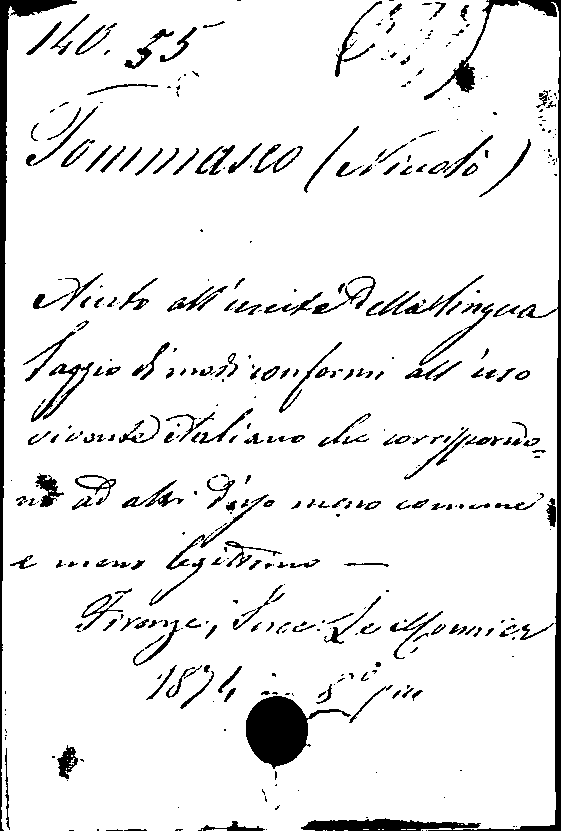 140. 55
Tommaseo (Nicolò)
Aiuto all'unità della lingua
Saggio di modi conformi all'uso
vivente italiano che corrispondo=
no ad altri d'uso meno comune
e meno legittimo —
Firenze, Succ. Le Monnier
1874 in 8°